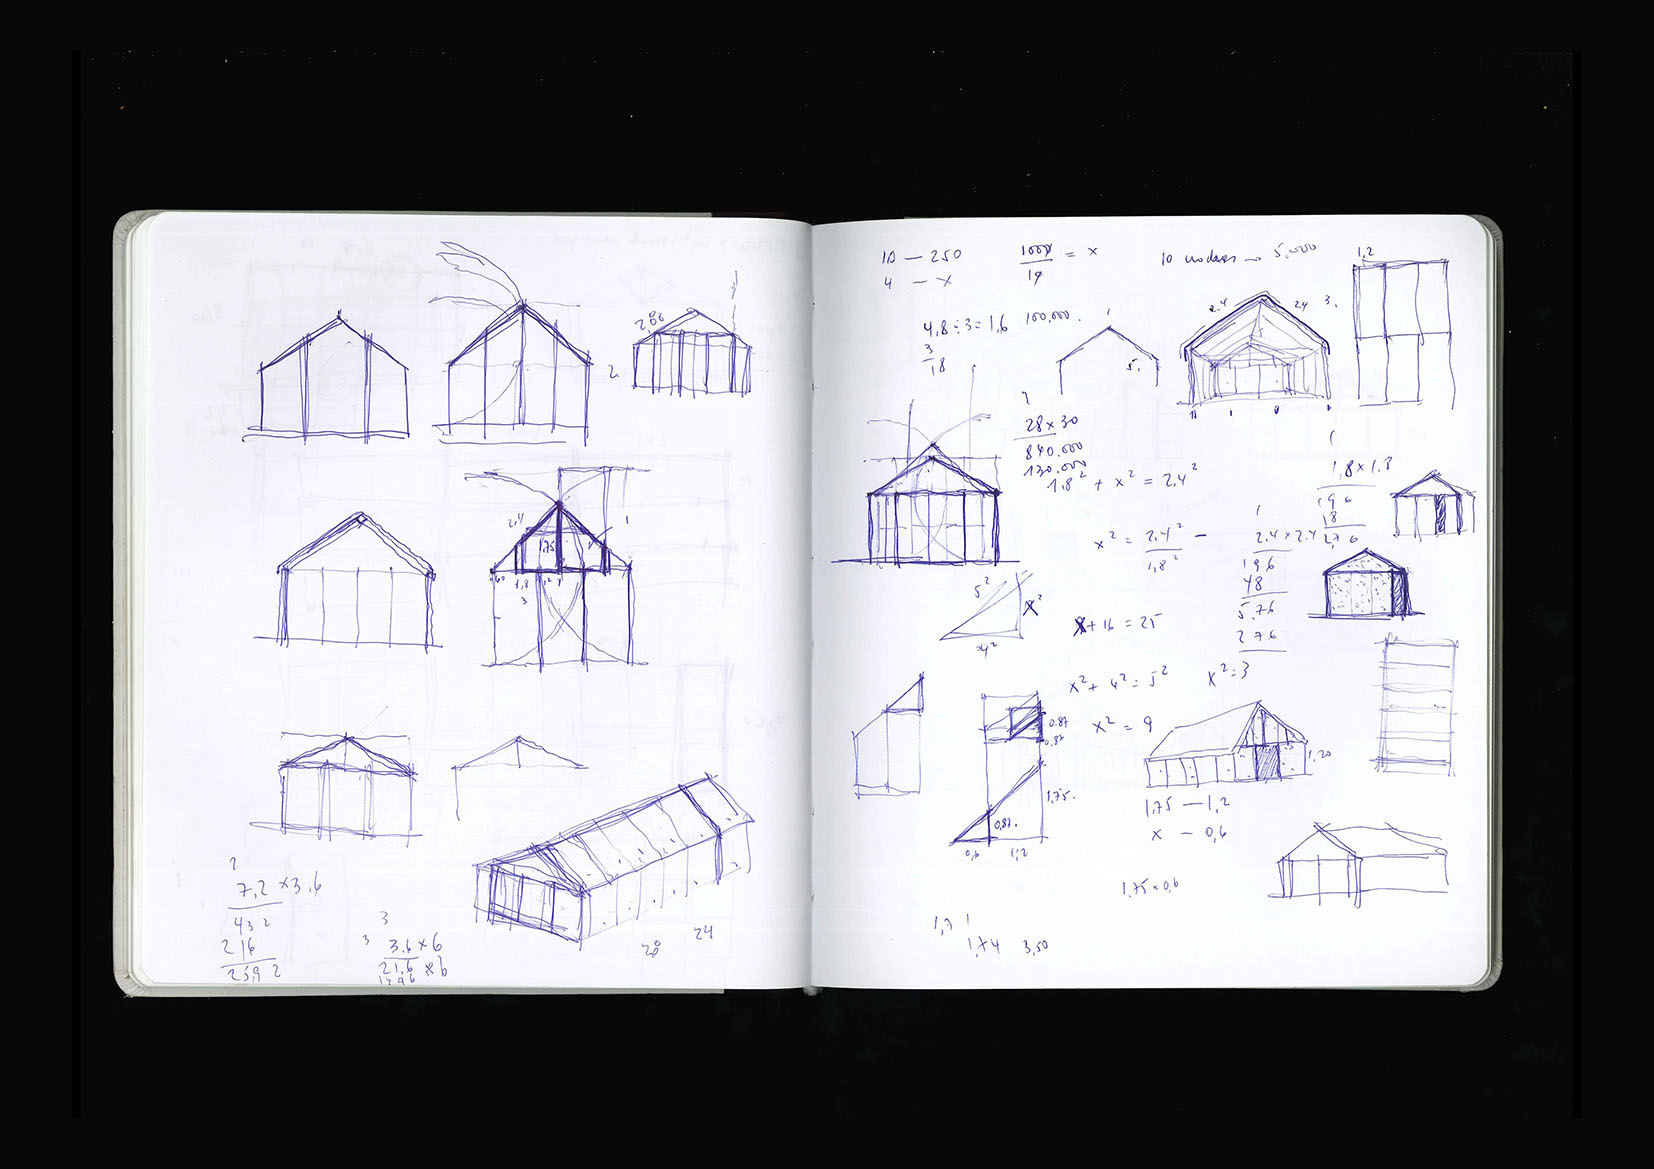 2,06
2.
2,4
1
1,75
60
1,8
1,2
3
28
24
2
7,2 × 3,6
43 2
216
25,9 2
3
3
3.6 × 6
21,6 × 6
1296
10 — 250
4 — x
1000
10
= x
10 modars → 5,000
1,2
4,8 ÷ 3 = 1,6
3
18
100,000.
5.
2.4
2,4
3.
28 × 30
840.000
130.000
1.8² + x² = 2,4²
1,8 × 1.8
18
x² = 2,4² —
1,8²
2.4 × 2.4
196
48
5,76
276
5²
x²
x + 16 = 25
x² + 4² = 5²
x² = 3
x² = 9
0.87
0,87
1,75.
0,87.
0,6
1,2
1,20
1,75 — 1,2
x — 0,6
1,75 × 0,6
1,7
1
1,74
3,50